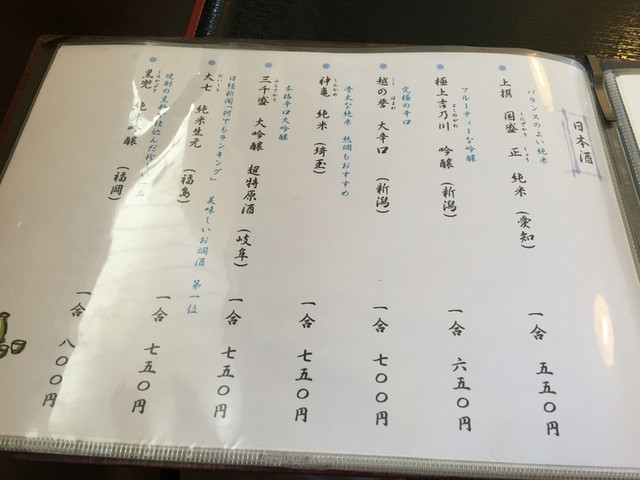 日本酒
バランスのよい純米
上撰 国盛 正 純米 (愛知) 一合 五五〇円
フルーティーな吟醸
よしのがわ
極上吉乃川 吟醸 (新潟) 一合 六五〇円
究極の辛口
こし ほまれ
越の誉 大辛口 (新潟) 一合 七〇〇円
骨太な純米 熱燗もおすすめ
しんかめ
神亀 純米 (埼玉) 一合 七五〇円
本格辛口大吟醸
みちさかり
三千盛 大吟醸 超特原酒 (岐阜) 一合 七五〇円
日経新聞「何でもランキング」 美味しいお燗酒 第一位
大七 純米生元 (福島) 一合 七五〇円
焼酎の黒麹 仕込んだ珍 一品
黒兜 純米吟醸 (福岡) 一合 八〇〇円